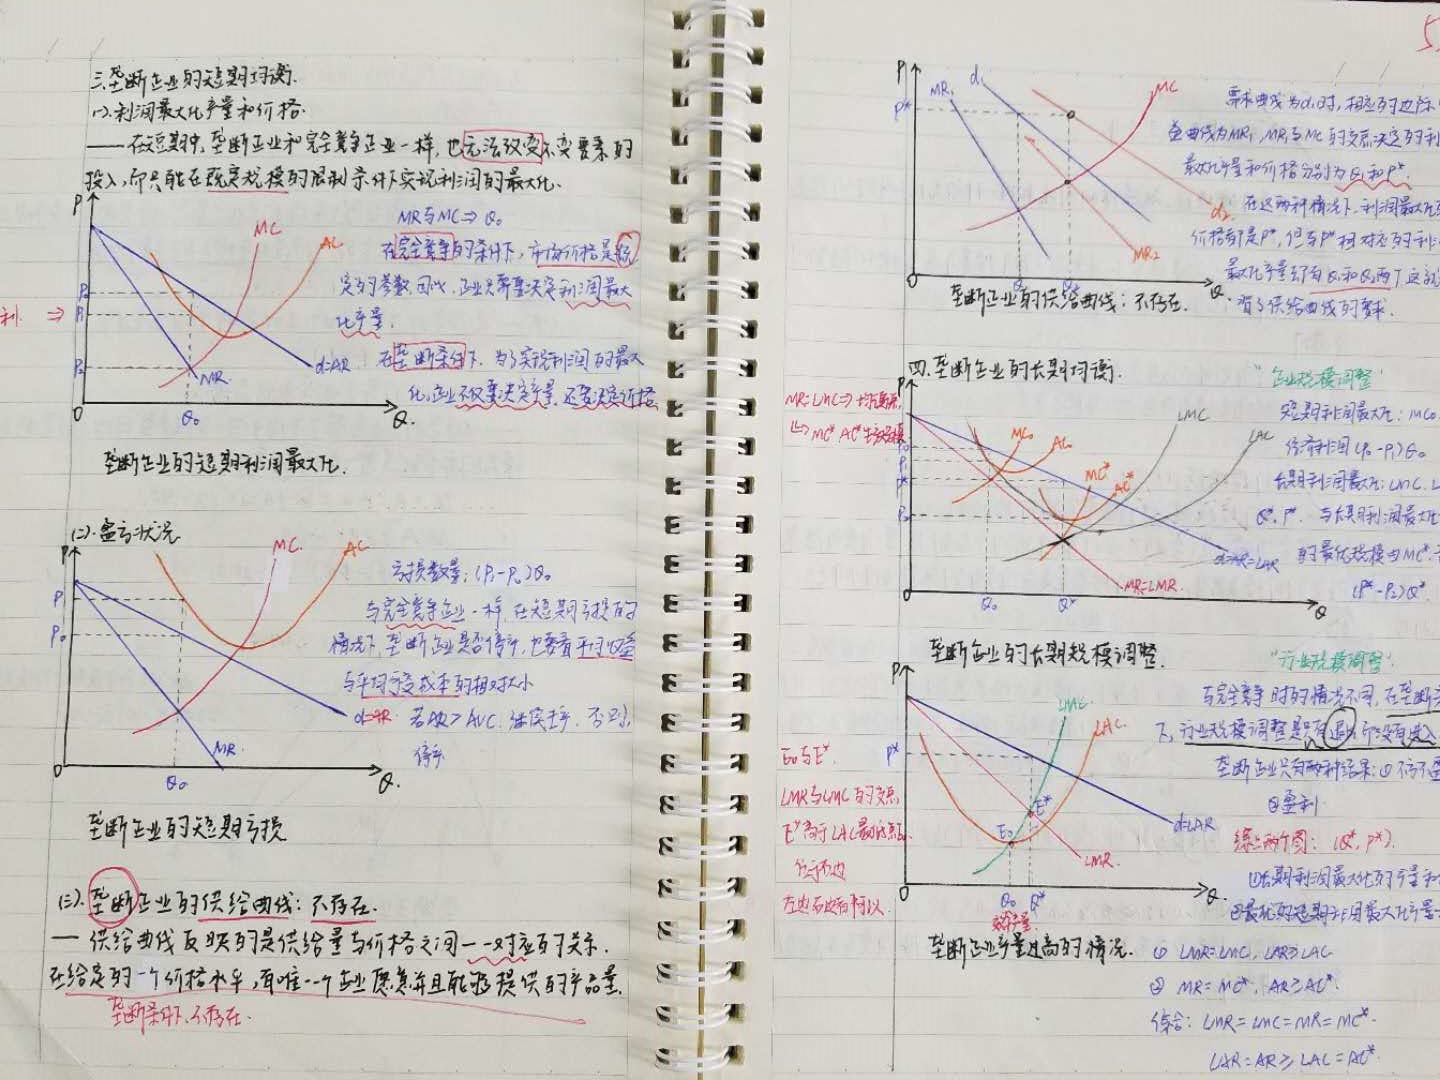 三.垄断企业的短期均衡.
(一).利润最大化产量和价格.
——在短期中,垄断企业和完全竞争企业一样,也无法改变不变要素的
投入,而只能在既定规模的限制条件下实现利润的最大化、
P
MC
AC
MR与MC⇒Q₀
在完全竞争的条件下,市场价格是既
定的参数,因此,企业只需要决定利润最大
化产量.
利 ⇒
P₀
P₁
P₂
在垄断条件下,为了实现利润的最大
化,企业不仅要决定产量,还要决定价格
d=AR
MR
0
Q₀
Q.
垄断企业的短期利润最大化.
(二).盈亏状况
P
MC
AC
亏损数量:(P₁-P₀)Q₀
与完全竞争企业一样,在短期亏损的
情况下,垄断企业是否停产,也要看平均收益
与平均可变成本的相对大小
P₁
P₀
d=AR
若AR>AVC,继续生产,否则,
停产
MR
0
Q₀
Q.
垄断企业的短期亏损
(三).垄断企业的供给曲线:不存在.
— 供给曲线反映的是供给量与价格之间一一对应的关系.
在给定的一个价格水平,有唯一一个企业愿意并且能够提供的产品量.
垄断条件下,不存在.
P
MR₁
d₁
MC
P*
需求曲线为d₁时,相应的边际
益曲线为MR₁,MR₁与MC的交点决定的利
最大化产量和价格分别为Q₁和P*.
d₂
MR₂
在这两种情况下,利润最大化
价格都是P*,但与P*相对应的利
最大化产量却有Q₁和Q₂两个
有了供给曲线的要求.
0
Q
垄断企业的供给曲线:不存在.
四.垄断企业的长期均衡.
"企业规模调整"
P
MR=LMC⇒均衡点
↳ MC* AC*生产规模
MC₀
AC₀
MC*
AC*
LMC
LAC
短期利润最大化:MC₀
经济利润(P₀-P₁)Q₀
长期利润最大化:LMC.
Q*.P*. 与长期利润最大化
的最优规模为MC*.
(P*-P₂)Q*.
P₀
P₁
P*
P₂
d=AR=LAR
MR=LMR.
0
Q₀
Q*
Q
垄断企业的长期规模调整.
"行业规模调整".
P
LMC
LAC
与完全竞争时的情况不同,在垄断
下,行业规模调整是只有退出而没有进入
垄断企业只有两种结果:①不亏不盈
②盈利
P*
E₀与E*
LMR与LMC的交点,
E*高于LAC最低点
左边右边都可以.
E₀
E*
d=LAR
LMR.
综上两个图:(Q*,P*).
①长期利润最大化的产量和
②最优的短期利润最大化产量
0
Q₀
Q*
Q.
垄断企业产量过高的情况.
① LMR=LMC, LAR≥LAC
② MR=MC*, AR≥AC*.
综合: LMR=LMC=MR=MC*.
LAR=AR≥LAC=AC*.